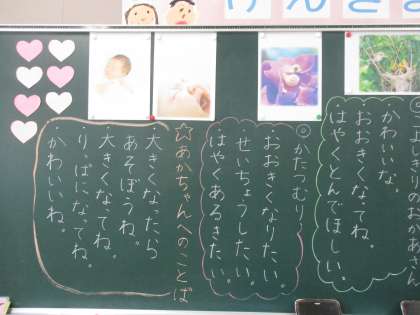 げんきな
こうしぎりのおかあさん
・かわいいな。
・おおきくなってね。
・はやくとんでほしい。
◎かたつむり
・おおきくなりたい。
・せいちょうしたい。
・はやくあるきたい。
☆あかちゃんへのことば
・大きくなったら
あそぼうね。
・大きくなってね。
・りっぱになってね。
・かわいいね。